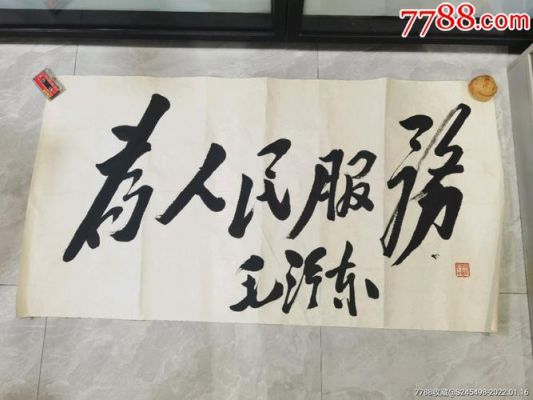 7788.com
为人民服務
毛泽东
7788收藏@S245498-2022.01.16